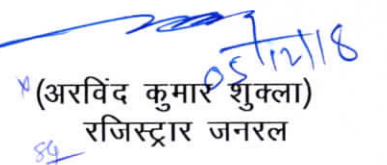 05/12/18
(अरविंद कुमार शुक्ला)
रजिस्ट्रार जनरल